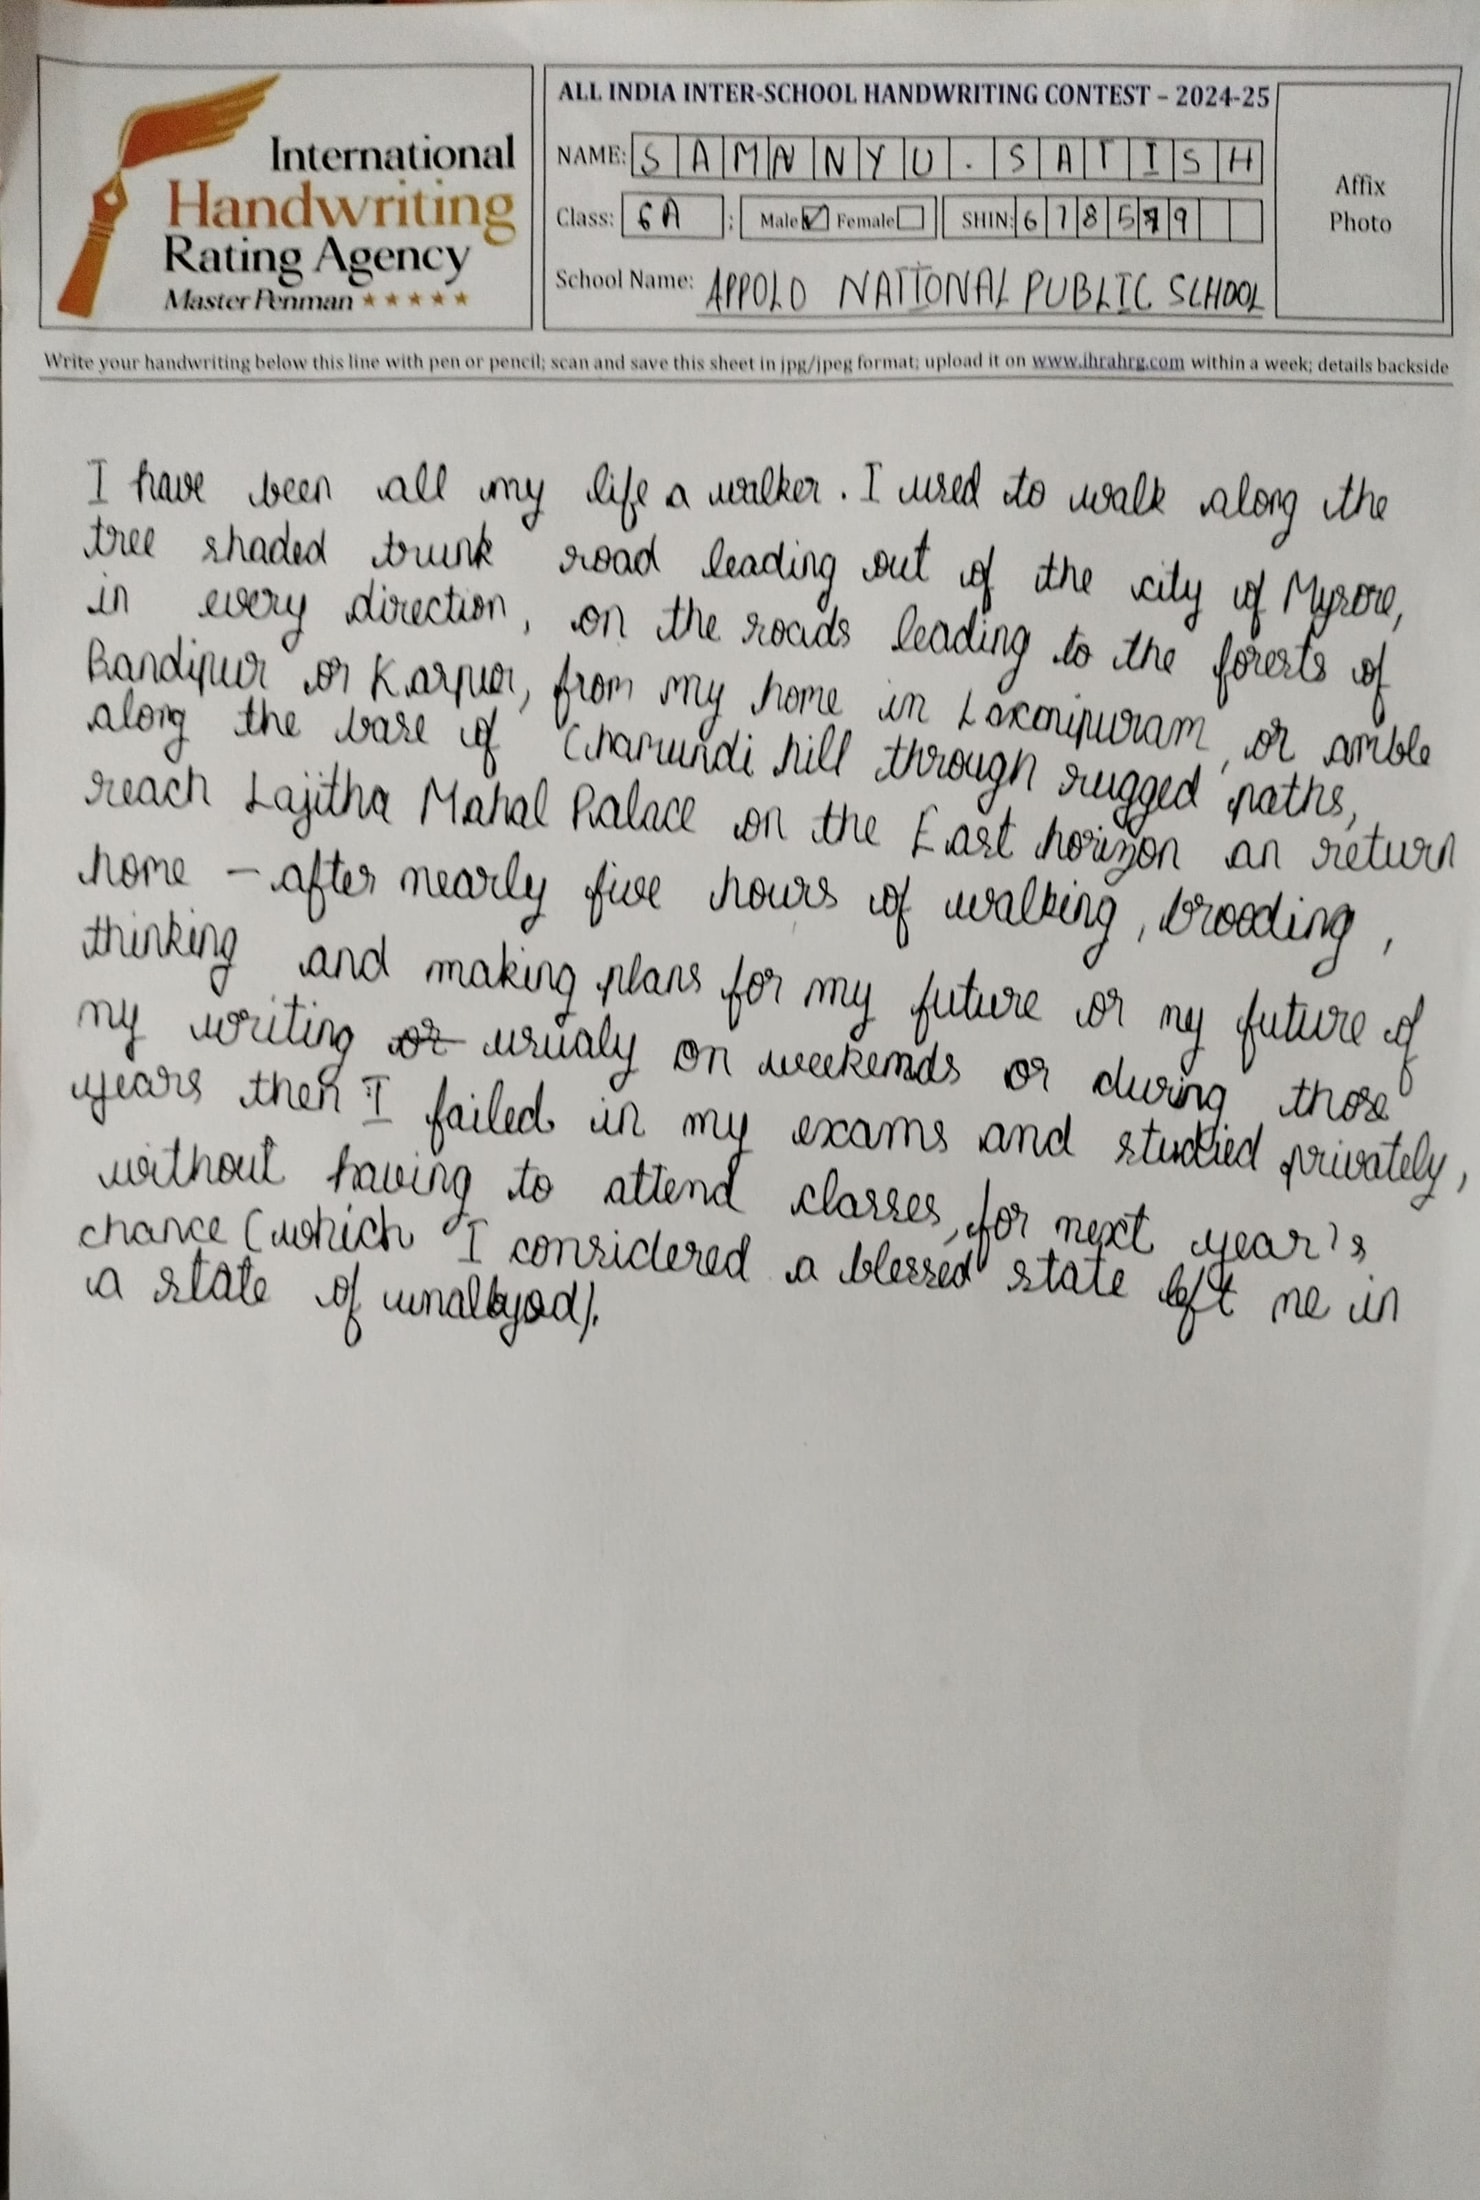 International
Handwriting
Rating Agency
Master Penman ★★★★★
ALL INDIA INTER-SCHOOL HANDWRITING CONTEST – 2024-25
NAME: SAMNNYU.SATISH
Class: 6A ; Male ☑ Female ☐ SHIN: 6785 9
School Name: APPOLO NATIONAL PUBLIC SCHOOL
Affix
Photo
Write your handwriting below this line with pen or pencil; scan and save this sheet in jpg/jpeg format; upload it on www.ihrahrg.com within a week; details backside
I have been all my life a walker. I used to walk along the
tree shaded trunk road leading out of the city of Mysore,
in every direction, on the roads leading to the forests of
Bandipur or Karpur, from my home in Laxmipuram, or amble
along the base of Chamundi hill through rugged paths,
reach Lajitha Mahal Palace on the East horizon an return
home – after nearly five hours of walking, brooding,
thinking and making plans for my future or my future of
my writing or usualy on weekends or during those
years then I failed in my exams and studied privately,
without having to attend classes, for next year's
chance (which I considered a blessed state left me in
a state of unalloyed).